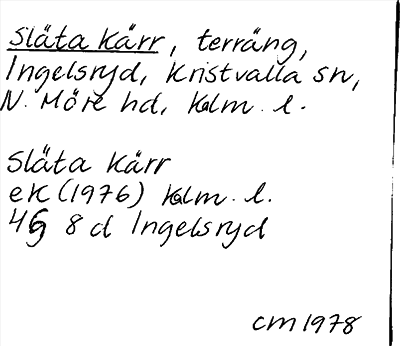 Släta Kärr, terräng,
Ingelsryd, Kristvalla sn,
N. Möre hd, Kalm. l.
Släta Kärr
ek (1976) Kalm. l.
4G 8d Ingelsryd
CM 1978